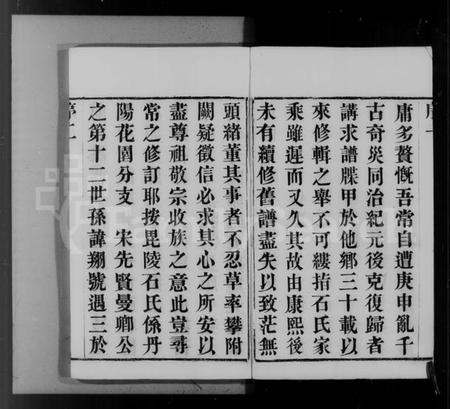 庸多贅慨吾常自遭庚申亂千
古奇災同治紀元後克復歸者
講求譜牒甲於他鄉三十載以
來修輯之舉不可縷指石氏家
乘雖遲而又久其故由康熙後
未有續修舊譜盡失以致茫無
頭緒董其事者不忍草率攀附
闕疑徵信必求其心之所安以
盡尊祖敬宗收族之意此豈尋
常之修訂耶按毘陵石氏係丹
陽花園分支 宋先賢曼卿公
之第十二世孫諱翔號遇三於
序二